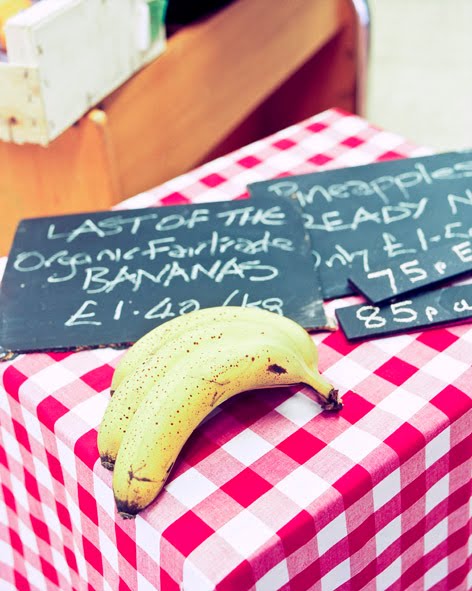 LAST OF THE
Organic Fairtrade
BANANAS
£1.40/kg
Pineapples
READY
£1.5
75p
85p